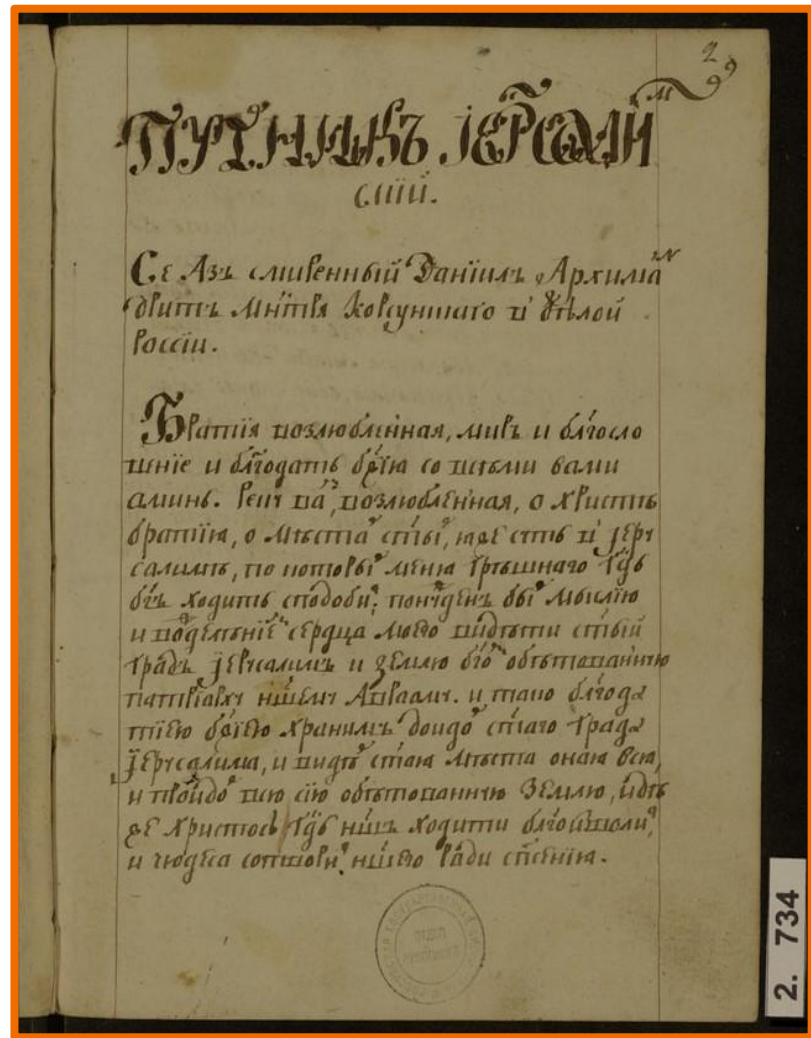 2
99
ПУТНИКЪ ІЕРСАЛИМ
СКІЙ.
Се Азъ смиренный Данїилъ Архима
дритъ Мнтря Корсунскаго и бѣлой
Россіи.
Братія возлюбленная, миръ и блгосло
венїе и блгодать бжїя со всѣми вами
аминь. Реку ва, возлюбленная, о Христѣ
братїя, о мѣста сты, иже есть в Іеру
салимѣ, по которы меня грѣшнаго Гдь
бгъ ходить сподоби, понуденъ бы мыслїю
и вожделѣнїе сердца моего видѣти стый
градъ Іерусалимъ и землю бго обѣтованную
патрїарху ншему Аврааму. и тако блгода
тїею бжїею хранимъ доидо стаго града
Іерусалима, и видѣ стая мѣста оная вся,
и проидо всю сїю обѣтованную землю, идѣ
же Христосъ Гдь ншъ ходити блгоизволи,
и чюдеса сотвори, ншего ради спсенїя.
2. 734